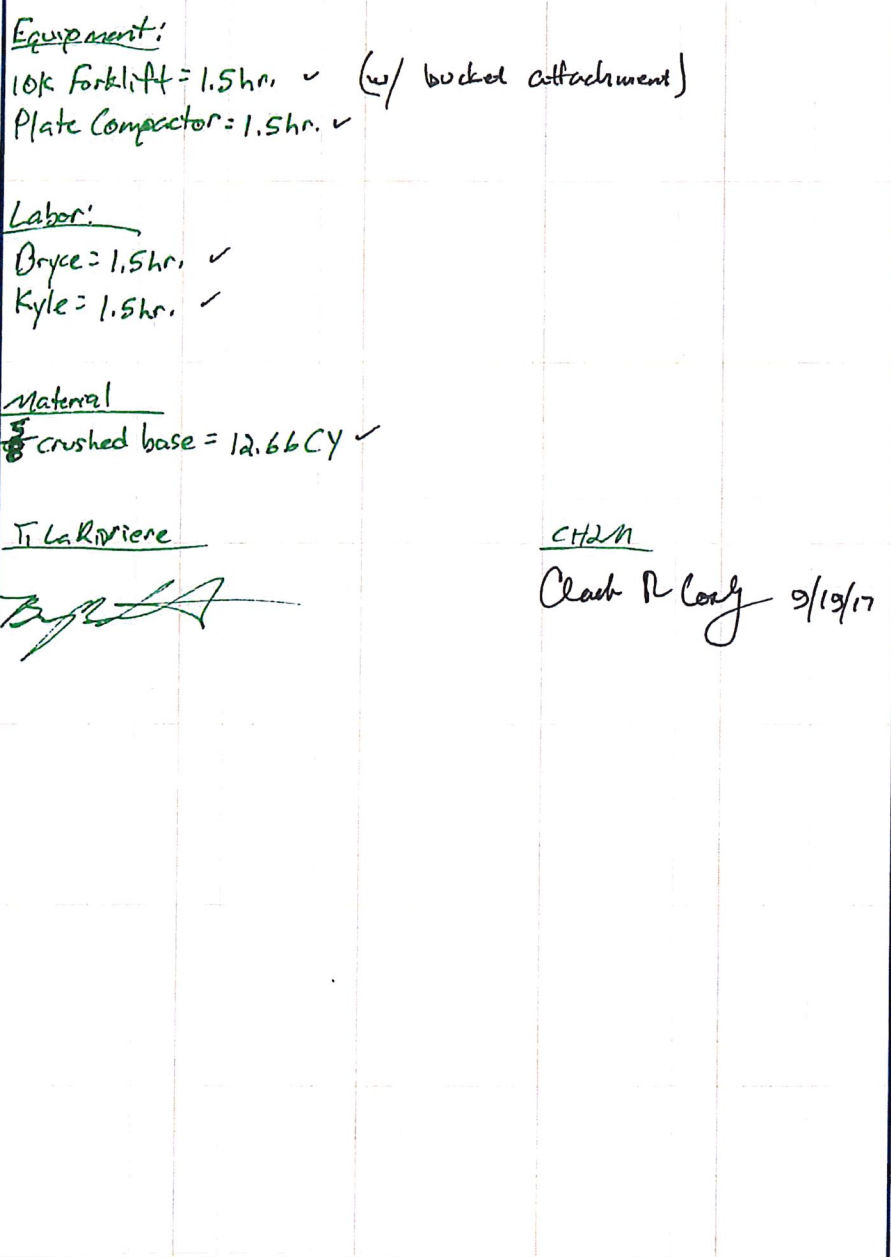 Equipment:
10K Forklift = 1.5hr. ✓ (w/ bucket attachment)
Plate Compactor = 1.5hr. ✓
Labor:
Bryce = 1.5hr. ✓
Kyle = 1.5hr. ✓
Material
5/8 crushed base = 12.66 CY ✓
T. LaRiviere
CH2M
9/19/17